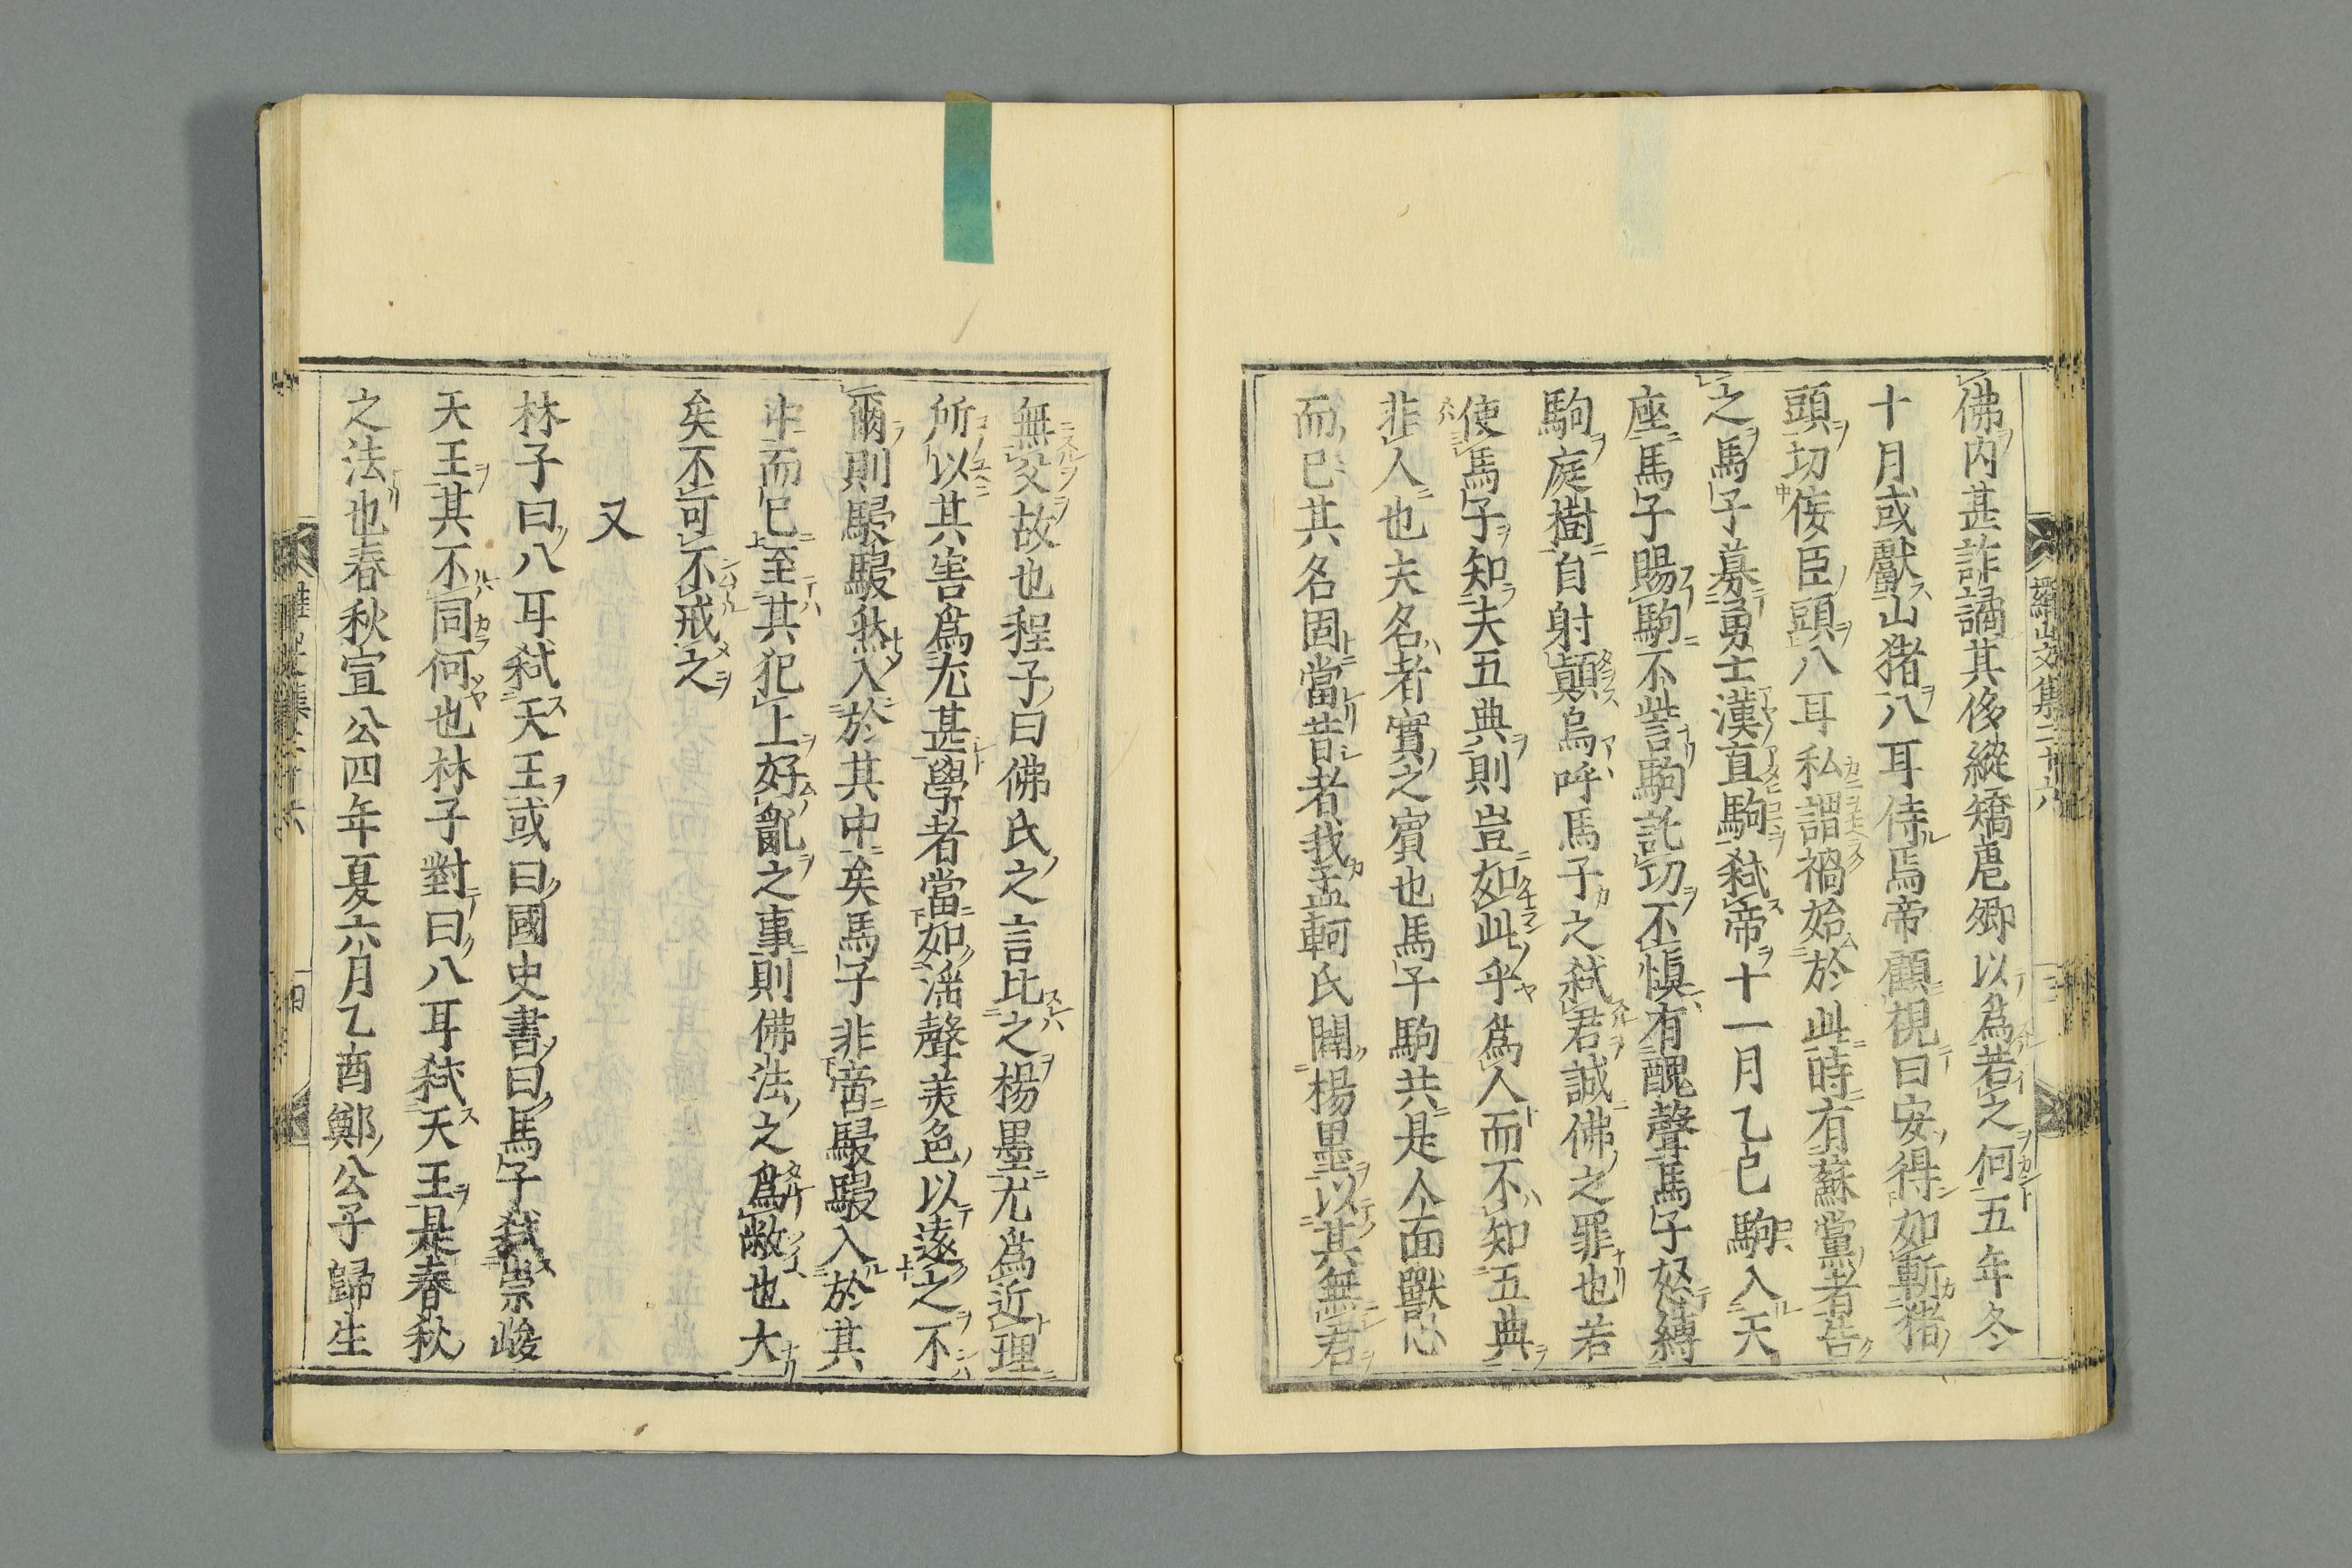 佛内甚詐譎其侈縱矯卮卿以爲若之何五年冬
十月或獻山猪八耳侍焉帝顧視曰安得如斬猪
頭切侫臣頭八耳私謂禍始於此時有蘇黨者告
之馬子募勇士漢直駒弑帝十一月乙巳駒入天
座馬子賜駒不訾駒訧切不愼有醜聲馬子怒縛
駒庭樹自射顛烏呼馬子之弑君誠佛之罪也若
使馬子知夫五典則豈如此乎爲人而不知五典
非人也夫名者實之賓也馬子駒共是人面獸心
而已其名固當昔者我孟軻氏闢楊墨以其無君
無父故也程子曰佛氏之言比之楊墨尤爲近理
所以其害爲尤甚學者當如滛聲美色以遠之不
爾則駸駸然入於其中矣馬子非啻駸駸入於其
中而已至其犯上好亂之事則佛法之爲敝也大
矣不可不戒之
又
林子曰八耳弑天王或曰國史書曰馬子弑崇峻
天王其不同何也林子對曰八耳弑天王是春秋
之法也春秋宣公四年夏六月乙酉鄭公子歸生